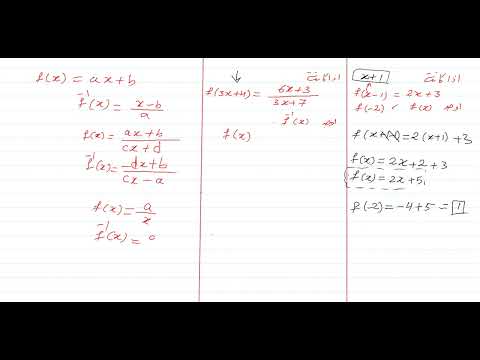 f(x) = ax+b
f⁻¹(x) = x-b / a
f(x) = ax+b / cx+d
f⁻¹(x) = -dx+b / cx-a
f(x) = a / x
f⁻¹(x) =
إذا كانت
f(3x+4) = 6x+3 / 3x+7
أوجد f⁻¹(x)
f(x)
x+1 إذا كانت
f(x-1) = 2x+3
أوجد f(x) , f(-2)
f(x+1-1) = 2(x+1)+3
f(x) = 2x+2+3
f(x) = 2x+5
f(-2) = -4+5 = 1